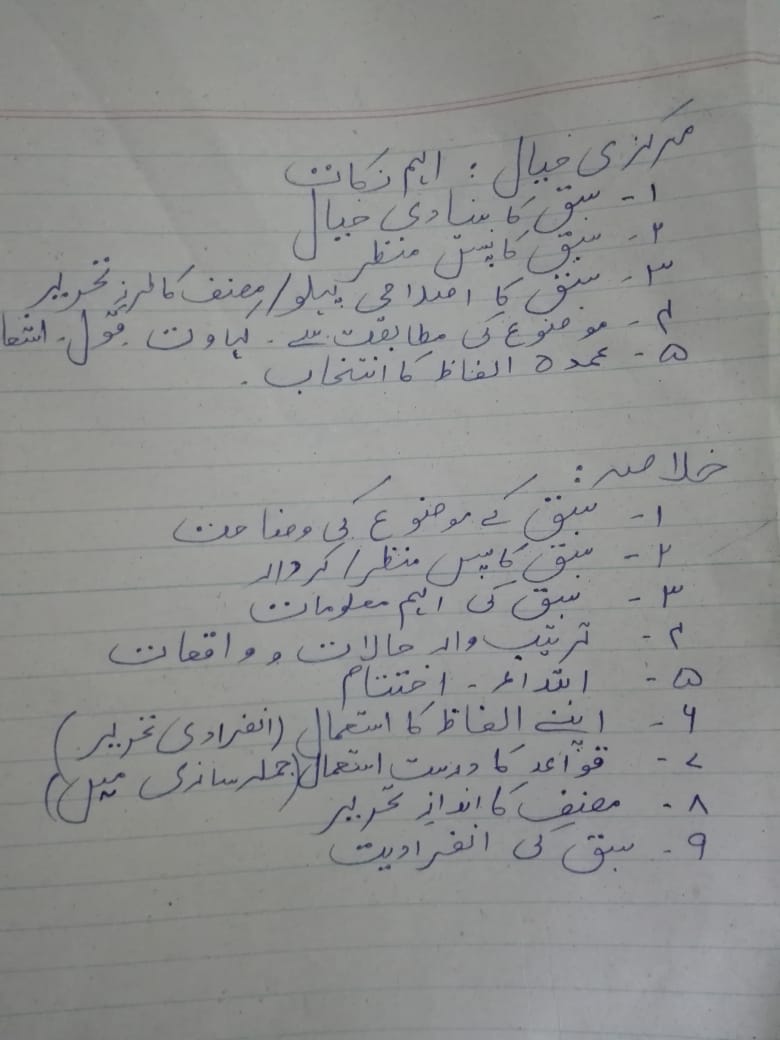 مرکزی خیال : اہم نکات
۱- سبق کا بنیادی خیال
۲- سبق کا پس منظر
۳- سبق کا اصلاحی پہلو/مصنف کا طرزِ تحریر
۴- موضوع کی مطابقت سے - کہاوت، قول -
۵- عمدہ الفاظ کا انتخاب -
خلاصہ :
۱- سبق کے موضوع کی وضاحت
۲- سبق کا پس منظر/کردار
۳- سبق کی اہم معلومات
۴- ترتیب وار حالات و واقعات
۵- ابتداء - اختتام
۶- اپنے الفاظ کا استعمال (انفرادی تحریر)
۷- قواعد کا درست استعمال (جملہ سازی میں)
۸- مصنف کا اندازِ تحریر
۹- سبق کی انفرادیت